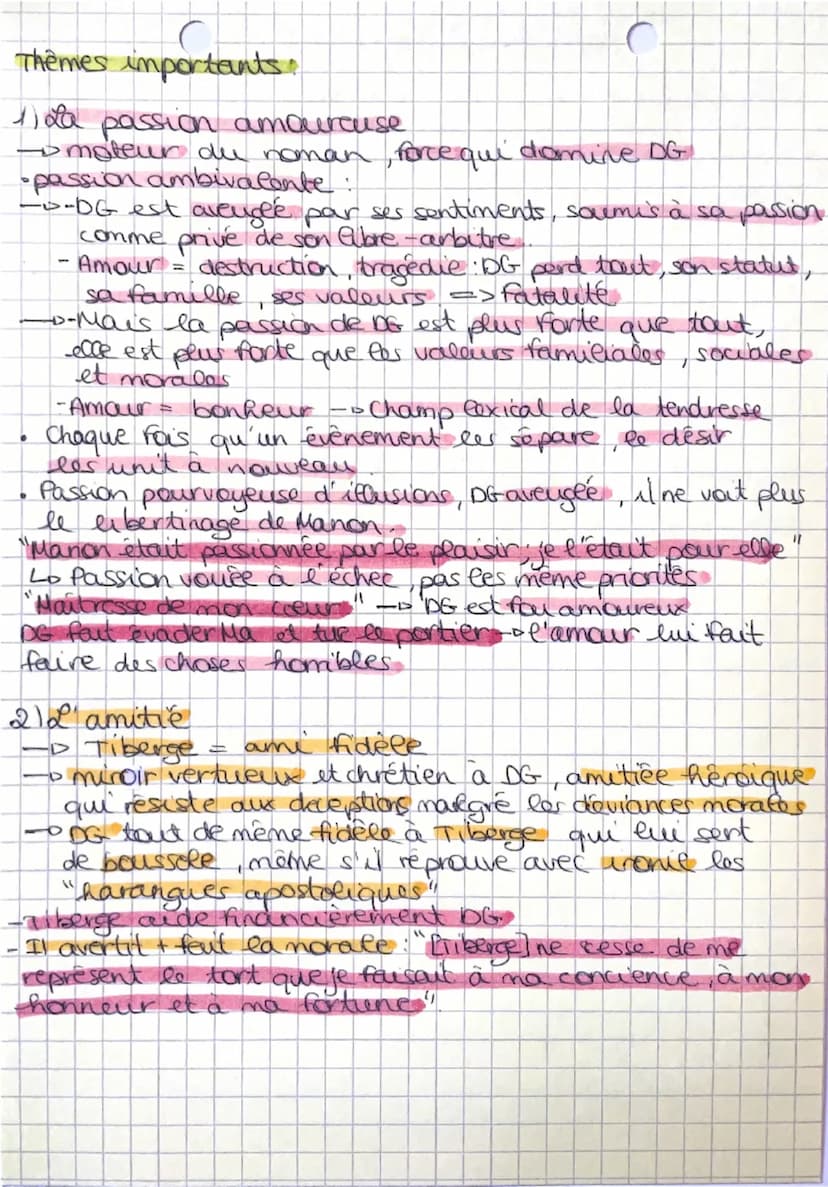 Thèmes importants:
1) La passion amoureuse
→ moteur du roman, force qui domine DG
• passion ambivalente :
→ - DG est aveuglé par ses sentiments, soumis à sa passion
comme privé de son libre-arbitre.
- Amour = destruction, tragédie : DG perd tout, son statut,
sa famille, ses valeurs => fatalité
→ - Mais la passion de DG est plus forte que tout,
elle est plus forte que les valeurs familiales, sociales
et morales
- Amour = bonheur → Champ lexical de la tendresse
• Chaque fois qu'un évènement les sépare, le désir
les unit à nouveau
• Passion pourvoyeuse d'illusions, DG aveuglé, il ne voit plus
le libertinage de Manon.
"Manon était passionnée par le plaisir; je l'était pour elle"
↳ Passion vouée à l'échec, pas les même priorités
"Maîtresse de mon coeur" → DG est fou amoureux
DG fait évader Ma et tue le portier → l'amour lui fait
faire des choses horribles
2) L'amitié
→ Tiberge = ami fidèle
→ miroir vertueux et chrétien à DG, amitiée héroïque
qui résiste aux déceptions malgré les déviances morales
→ DG tout de même fidèle à Tiberge qui lui sert
de boussole, même s'il réprouve avec ironie les
"harangues apostoliques"
- Tiberge aide financièrement DG
- Il avertit + fait la morale : "[Tiberge] ne cesse de me
représent le tort que je faisait à ma concience, à mon
honneur et à ma fortune".